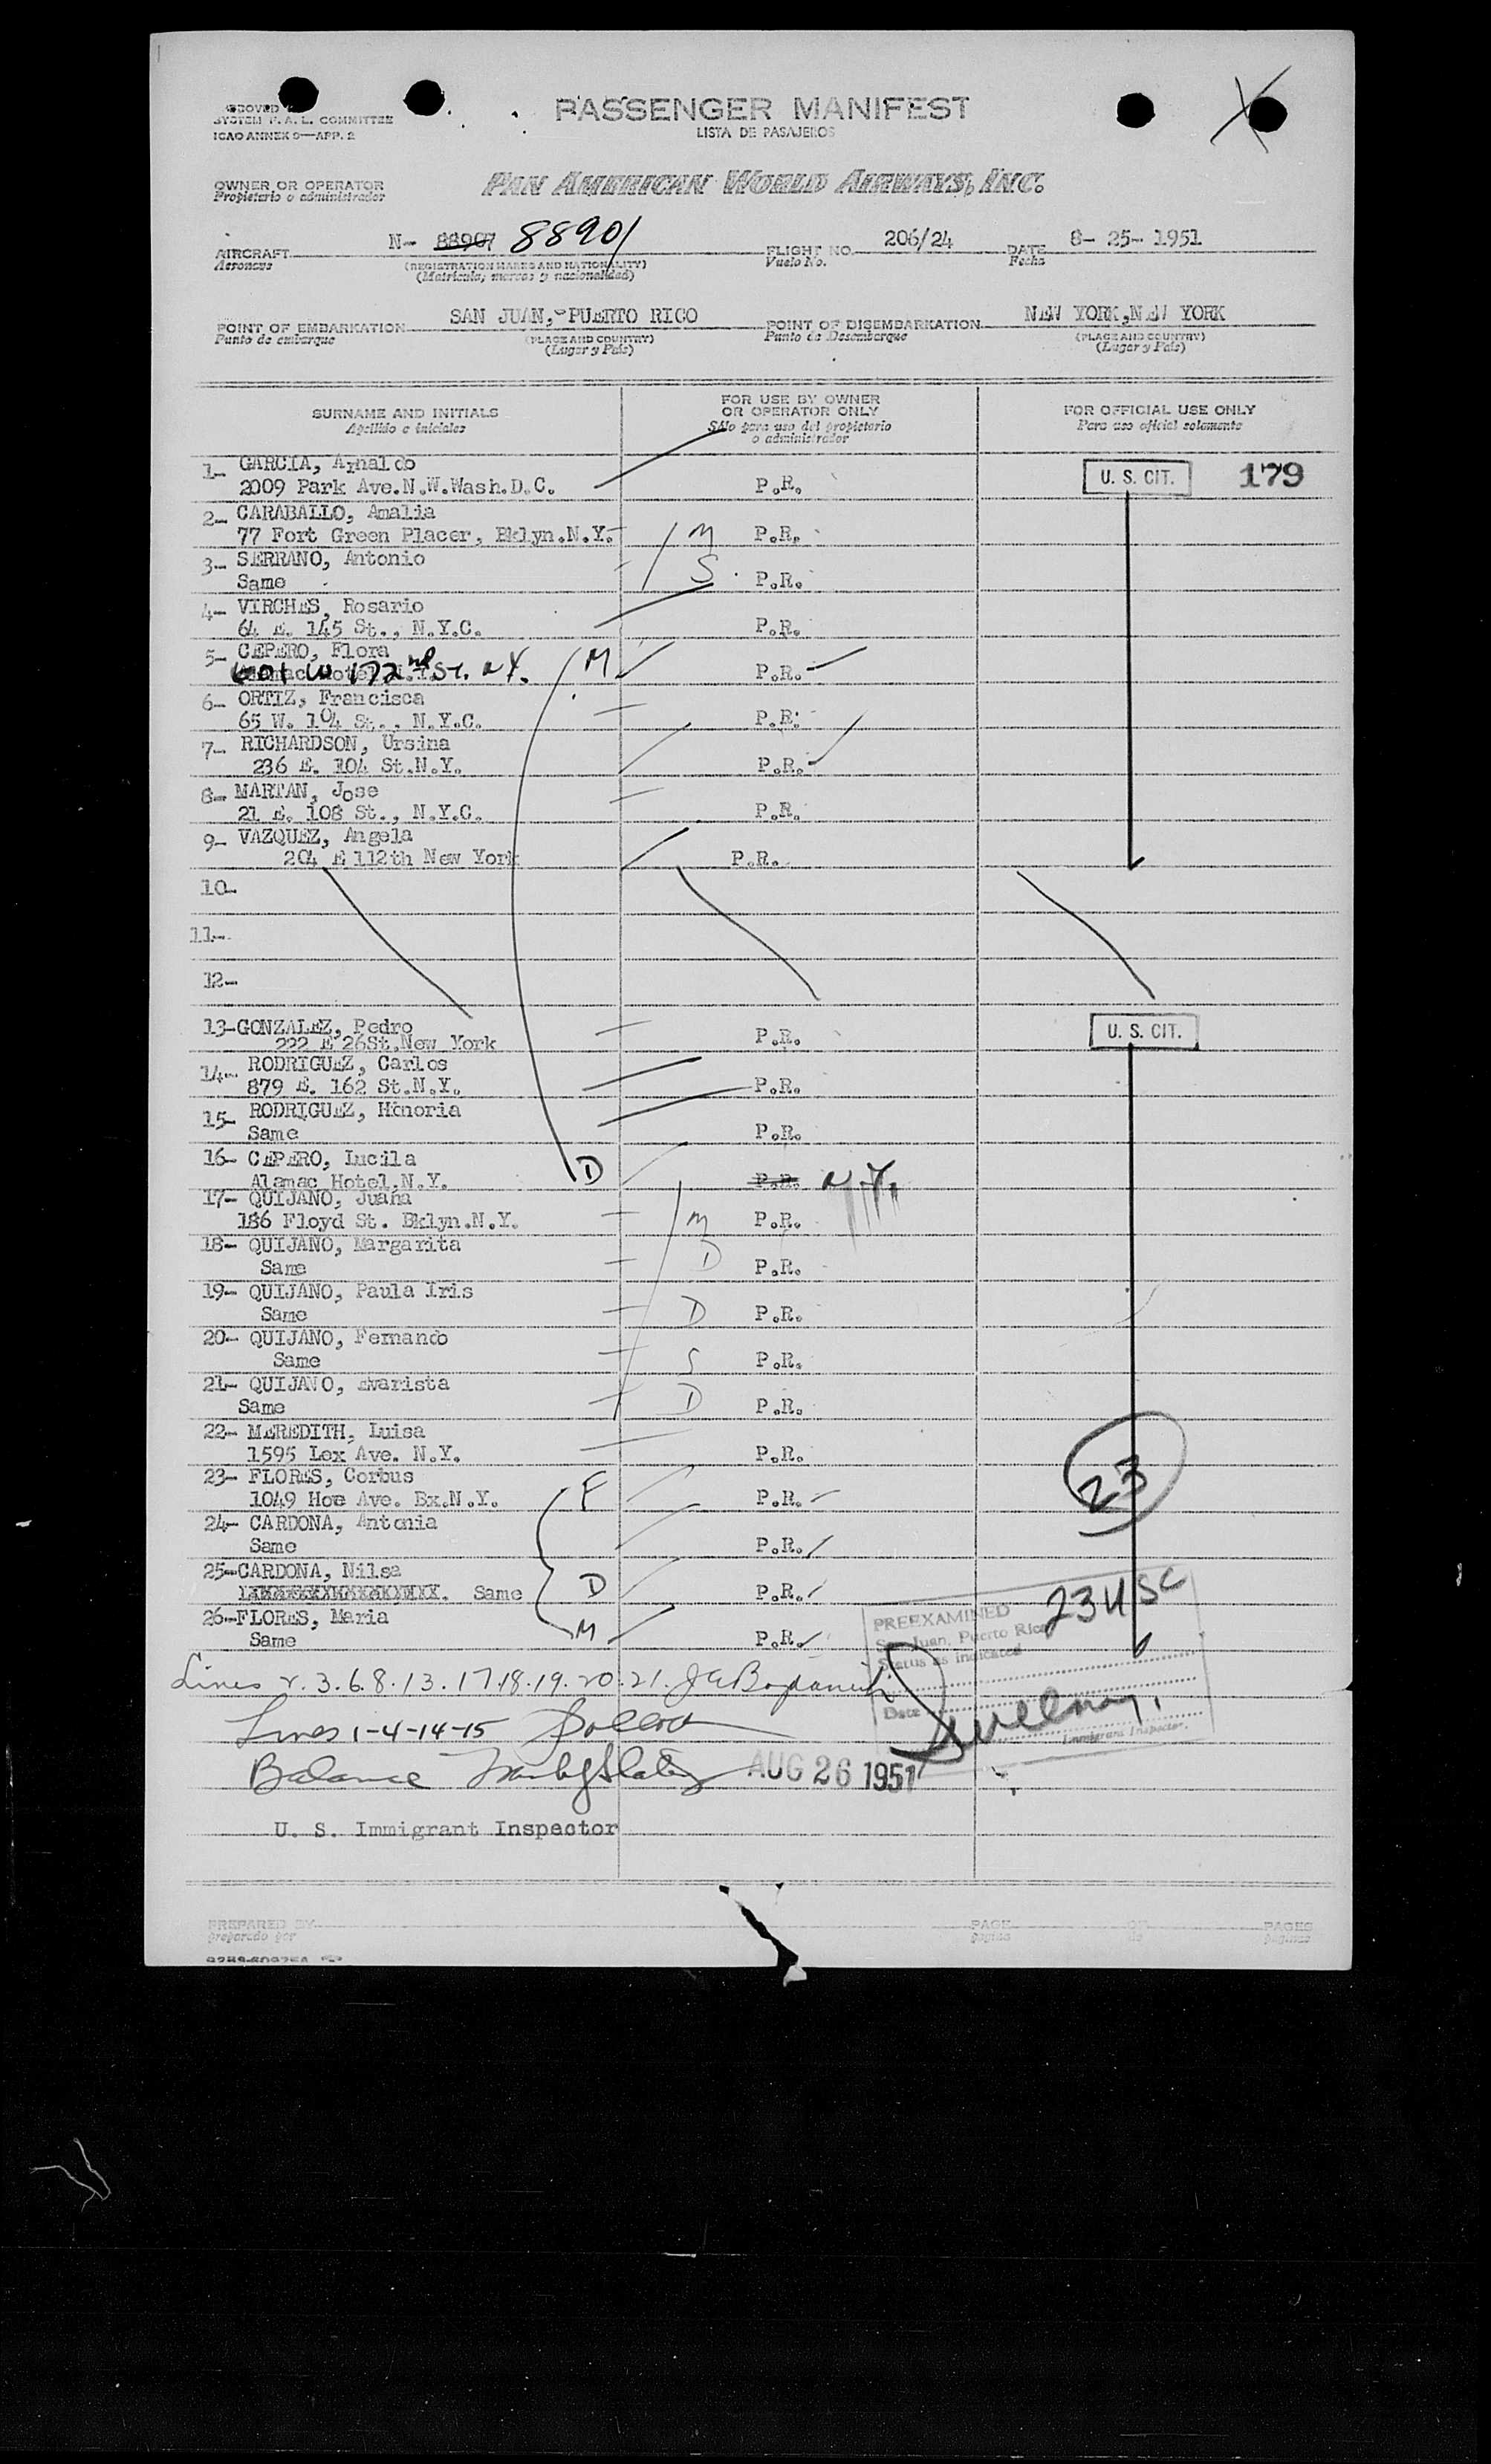 SYSTEM F. A. L. COMMITTEE
ICAO ANNEX 9—APP. 2
PASSENGER MANIFEST
LISTA DE PASAJEROS
OWNER OR OPERATOR
Propietario o administrador
PAN AMERICAN WORLD AIRWAYS, INC.
AIRCRAFT N- 88907 88901 FLIGHT NO. 206/24 DATE 8- 25- 1951
Aeronave (REGISTRATION MARKS AND NATIONALITY) Vuelo No. Fecha
(Matrícula, marcas y nacionalidad)
POINT OF EMBARKATION SAN JUAN, PUERTO RICO POINT OF DISEMBARKATION NEW YORK,NEW YORK
Punto de embarque (PLACE AND COUNTRY) Punto de Desembarque (PLACE AND COUNTRY)
(Lugar y País) (Lugar y País)
SURNAME AND INITIALS
Apellido e iniciales
FOR USE BY OWNER
OR OPERATOR ONLY
Sólo para uso del propietario
o administrador
FOR OFFICIAL USE ONLY
Para uso oficial solamente
1- GARCIA, Arnaldo
2009 Park Ave.N.W.Wash.D.C. P.R. U. S. CIT. 179
2- CARABALLO, Amalia
77 Fort Green Placer, Bklyn.N.Y. M P.R.
3- SERRANO, Antonio
Same S P.R.
4- VIRCHES, Rosario
64 E. 145 St., N.Y.C. P.R.
5- CEPERO, Flora M
601 W 172nd St. N.Y. P.R.
6- ORTIZ, Francisca
65 W. 104 St., N.Y.C. P.R.
7- RICHARDSON, Ursina
236 E. 104 St.N.Y. P.R.
8- MARTAN, Jose
21 E. 108 St., N.Y.C. P.R.
9- VAZQUEZ, Angela
204 E 112th New York P.R.
10-
11-
12-
13-GONZALEZ, Pedro
222 E 26St.New York P.R. U. S. CIT.
14- RODRIGUEZ, Carlos
879 E. 162 St.N.Y. P.R.
15- RODRIGUEZ, Honoria
Same P.R.
16- CEPERO, Lucila
Alamac Hotel.N.Y. D P.R. N.Y.
17- QUIJANO, Juana
186 Floyd St. Bklyn.N.Y. M P.R.
18- QUIJANO, Margarita
Same D P.R.
19- QUIJANO, Paula Iris
Same D P.R.
20- QUIJANO, Fernando
Same S P.R.
21- QUIJANO, Evarista
Same D P.R.
22- MEREDITH, Luisa
1595 Lex Ave. N.Y. P.R.
23
23- FLORES, Corbus
1049 Hoe Ave. Bx.N.Y. F P.R.
24- CARDONA, Antonia
Same P.R.
25-CARDONA, Nilsa
Same D P.R.
26-FLORES, Maria
Same M P.R.
PREEXAMINED 23 USC
San Juan, Puerto Rico
Status as indicated
Date
Immigrant Inspector.
Lines 2.3.6.8.13.17.18.19.20.21.
Lines 1-4-14-15
Balance
AUG 26 1951
U. S. Immigrant Inspector
PREPARED BY PAGE OF PAGES
preparado por página de páginas